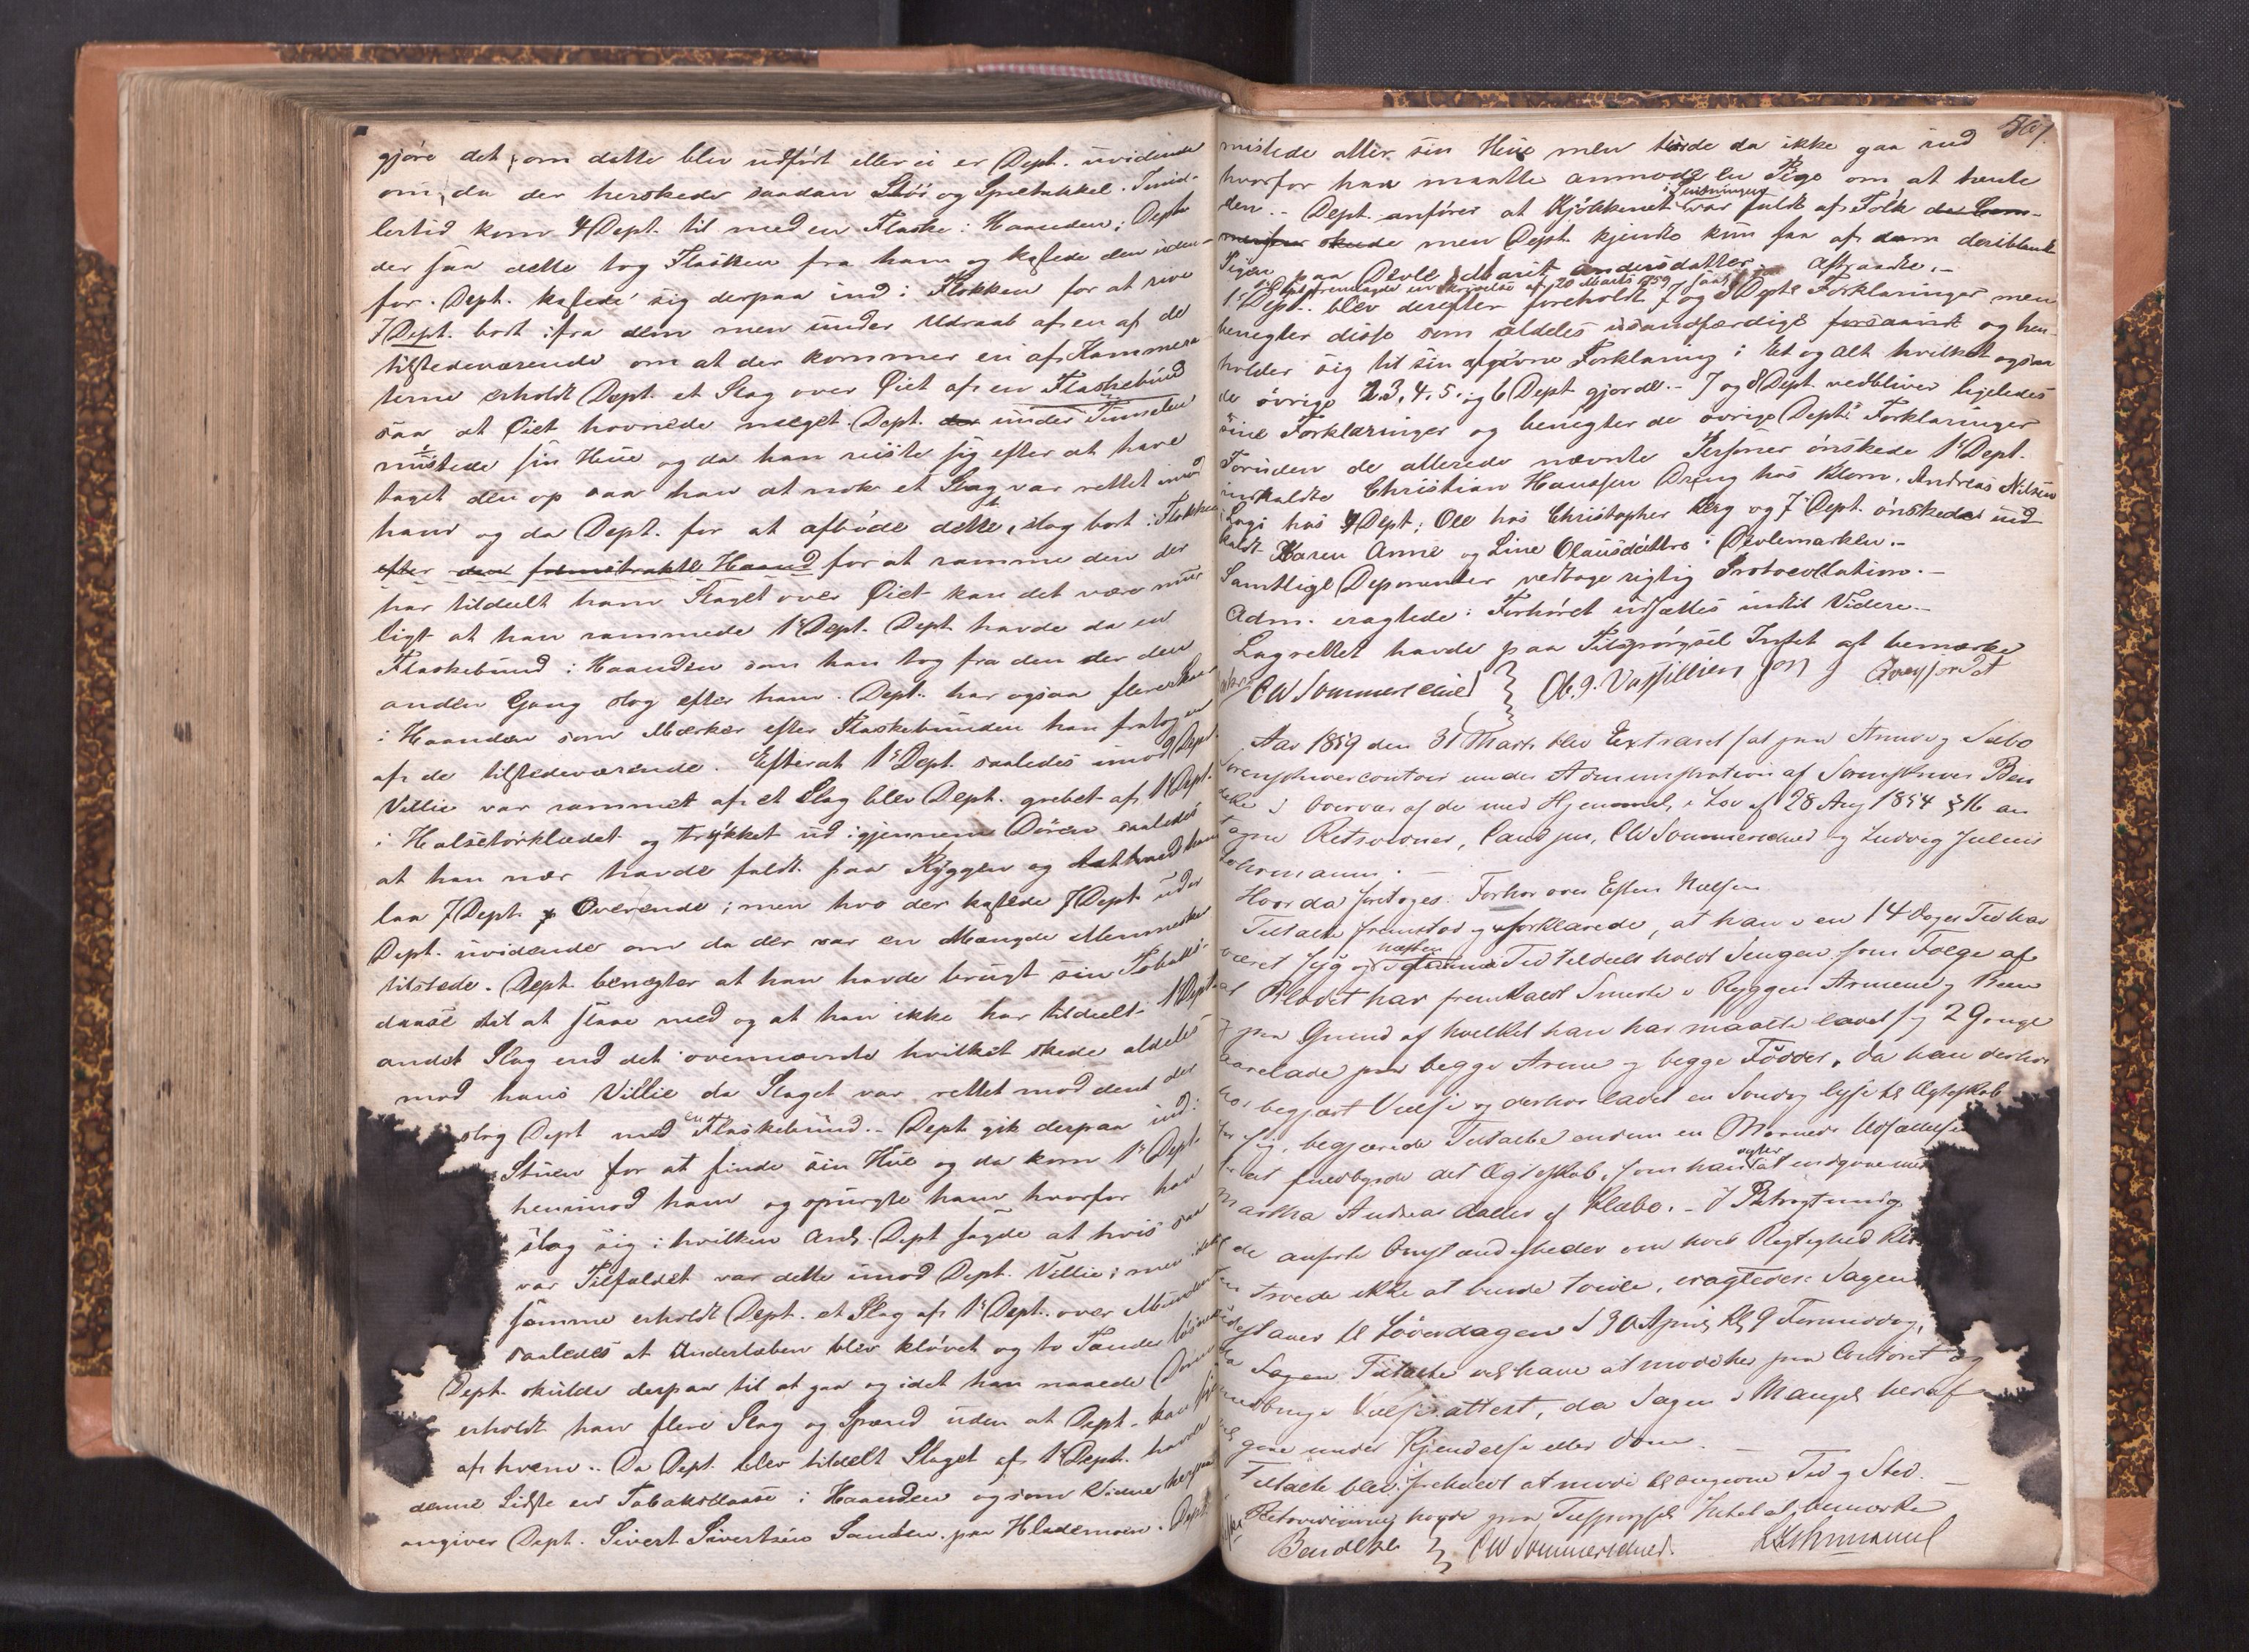 gjøre det, om dette blev udført eller ei er Dept. uvidende
om, da der herskede saadan Støi og Spetakkel. Imid-
lertid kom 4 Dept. til med en Flaske i Haanden; Dept.
der saa dette tog Flasken fra ham og kastede den uden-
for. Dept. kastede sig derpaa ind i Flokken for at rive
7 Dept. bort ifra dem men under Udraab af en af de
tilstedeværende om at der kommer en af Kammera
terne erholdt Dept. et Slag over Øiet af en Flaskebund
saa at Øiet hovnede meget. Dept. under Tumulen
mistede sin Hue og da han reiste sig efter at have
taget den op saa han at nok et Slag var rettet imod
ham og da Dept. for at afbøde dette, slog bort i Flokken
efter den fremstrakte Haand for at ramme den der
har tildeelt ham Slaget over Øiet kan det være mue
ligt at han rammede 1ste Dept. Dept. havde da en
Flaskebund i Haanden som han tog fra den der den
anden Gang slog efter ham. Dept. har ogsaa flere Skaar
i Haanden som Mærker efter Flaskebunden han fratog en
af de tilstedeværende. Efterat 1ste Dept. saaledes imod Dept.
Villie var rammet af et Slag blev Dept. grebet af 1 Dept.
i Halstørklædet og trykket ud igjennem Døren saaledes
at han nær havde faldt paa Ryggen og
laa 7 Dept. Overende; men hvo der kastede 7 Dept. er
Dept. uvidende om da der var en Mængde Mennesker
tilstede. Dept. benægter at han havde brugt sin Tobaks-
daase til at slaae med og at han ikke har tildeelt 1 Dept.
andet Slag end det ovennævnte hvilket skede aldeles
mod hans Villie da Slaget var rettet mod den der
slog Dept med en Flaskebund. Dept. gik derpaa ind i
Stuen for at finde sin Hue og da kom 1ste Dept.
henimod ham og spurgte ham hvorfor han
slog sig i hvilken Anl. Dept sagde at hvis saa
var Tilfældet var dette imod Dept. Villie; men idet
samme erholdt Dept. et Slag af 1ste Dept. over Munden
saaledes at Underlæben blev kløvet og to Tænder løsnede
Dept. skulde derpaa til at gaa og idet han naaede Døren
erholdt han flere Slag og Spænd uden at Dept. kan sige
af hvem. Da Dept. blev tildelt Slaget af 1ste Dept. havde
denne Sidste en Tobaksdaase i Haanden og som Vidne herpaa
angiver Dept. Sivert Sivertsen Sanden paa Hlademoen. Dept.
507.
mistede atter sin Hue men turde da ikke gaa ind
hvorfor han maatte anmode en Pige om at hente
den. - Dept. anfører at Kjøkkenet i Slutningen var fuldt af Folk
men Dept kjendte kun faa af dem deriblandt
Pigen paa Devle Marit Andersdatter. Aftraadte. -
fremlagde en Skrivelse af 20 Marts 1859
1ste Dept. blev derefter foreholdt 7 og 8 Depts Forklaringer men
benegter disse som aldeles usandfærdige og hen
holder sig til sin afgivne Forklaring i Et og Alt hvilket ogsaa
de øvrige 2, 3, 4, 5, og 6 Dept gjorde. - 7 og 8 Dept. vedbliver ligeledes
sine Forklaringer og benegter de øvrige Depts Forklaringer
Foruden de allerede nævnte Personer ønskede 1ste Dept.
indkaldte Christian Hanssen Dreng hos Klom, Andreas Nilsen
Logi hos 4 Dept; Ole hos Christopher Berg og 7 Dept. ønskede ind
kaldt Karen Anne og Line Olausdøttre i Devlemarken. -
Samtlige Deponenter vedtoge rigtig Protocollation. -
Adm. eragtede: Forhøret udsættes indtil Videre. -
Lagrettet havde paa Tilspørgsel Intet at bemærke
CW Sommerschield

Aar 1859 den 31 Marts blev Extraret sat paa Strinde og Selbo
Sorenskrivercontoir under Administration af Sorenskriver Ben
deke i Overvær af de med Hjemmel i Lov af 28 Aug 1854 § 16 an
tagne Retsvidner, Cand jur. CW Sommerschield og Ludvig Julius
Lehmann. -
Hvorda foretoges: Forhør over Esten Nielsen
Tiltalte fremstod og forklarede, at han i en 14 Dages Tid har
været syg og næsten Tid tildeels holdt Sengen som Følge af
at Blodet har fremkaldt Smerte i Ryggen Armene og Been
og paa Grund af hvilket han har maattet ladet sig 2 Gange
aarelade paa begge Arme og begge Fødder. Da han derhos
har begjært Vielse og derhos ladet en Søndag lyse til Ægteskab
for sig, begjærede Tiltalte endnu en Maaneds Udsættelse
for at fuldbyrde det Ægteskab, som han agter at indgaae med
Martha Andreasdatter af Klæbo. - I Betragtning
de anførte Omstændigheder om hvis Rigtighed Ret
ten troede ikke at burde tvivle, eragtedes: Sagen
udstaaer til Løverdagen d 30 April Kl 9 Formiddag,
da Sagen Tiltalte vil have at møde her paa Contoret og
medbringe Vielsesattest, da Sagen i Mangel heraf
vil gaae under Kjendelse eller Dom. -
Tiltalte blev foreholdt at møde til angivne Tid og Sted. -
Retsvidnerne havde paa Tilspørgsel Intet at bemærke
Bendeke CW Sommerschield. LLehmann